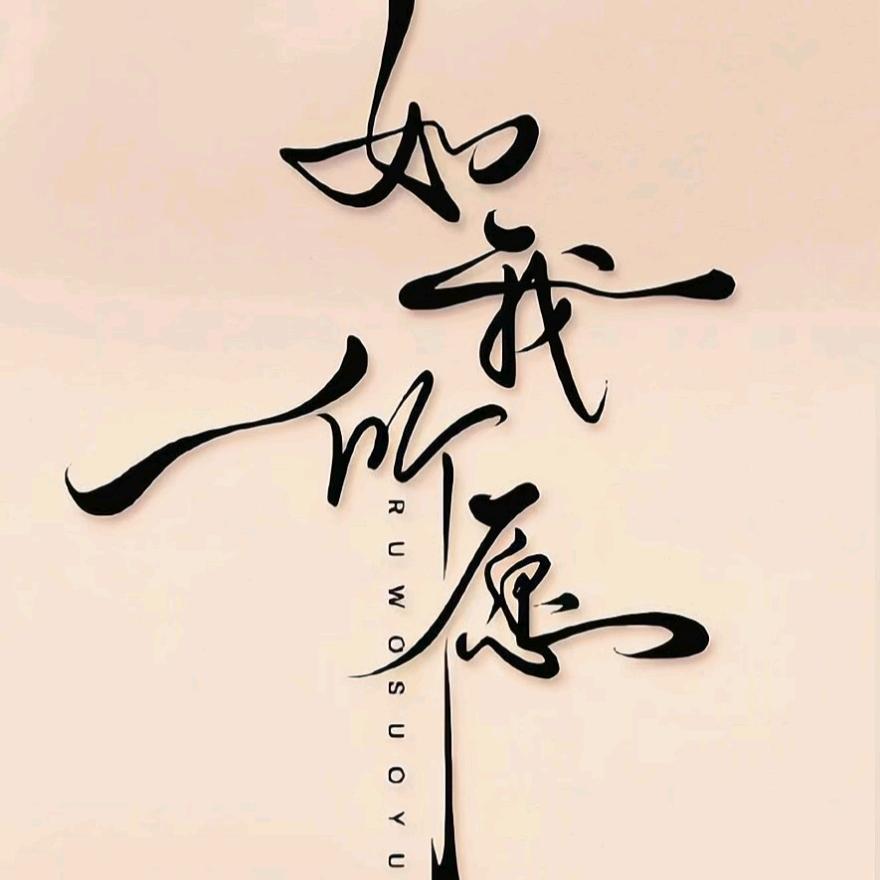 如我所愿
RUWOSUOYU